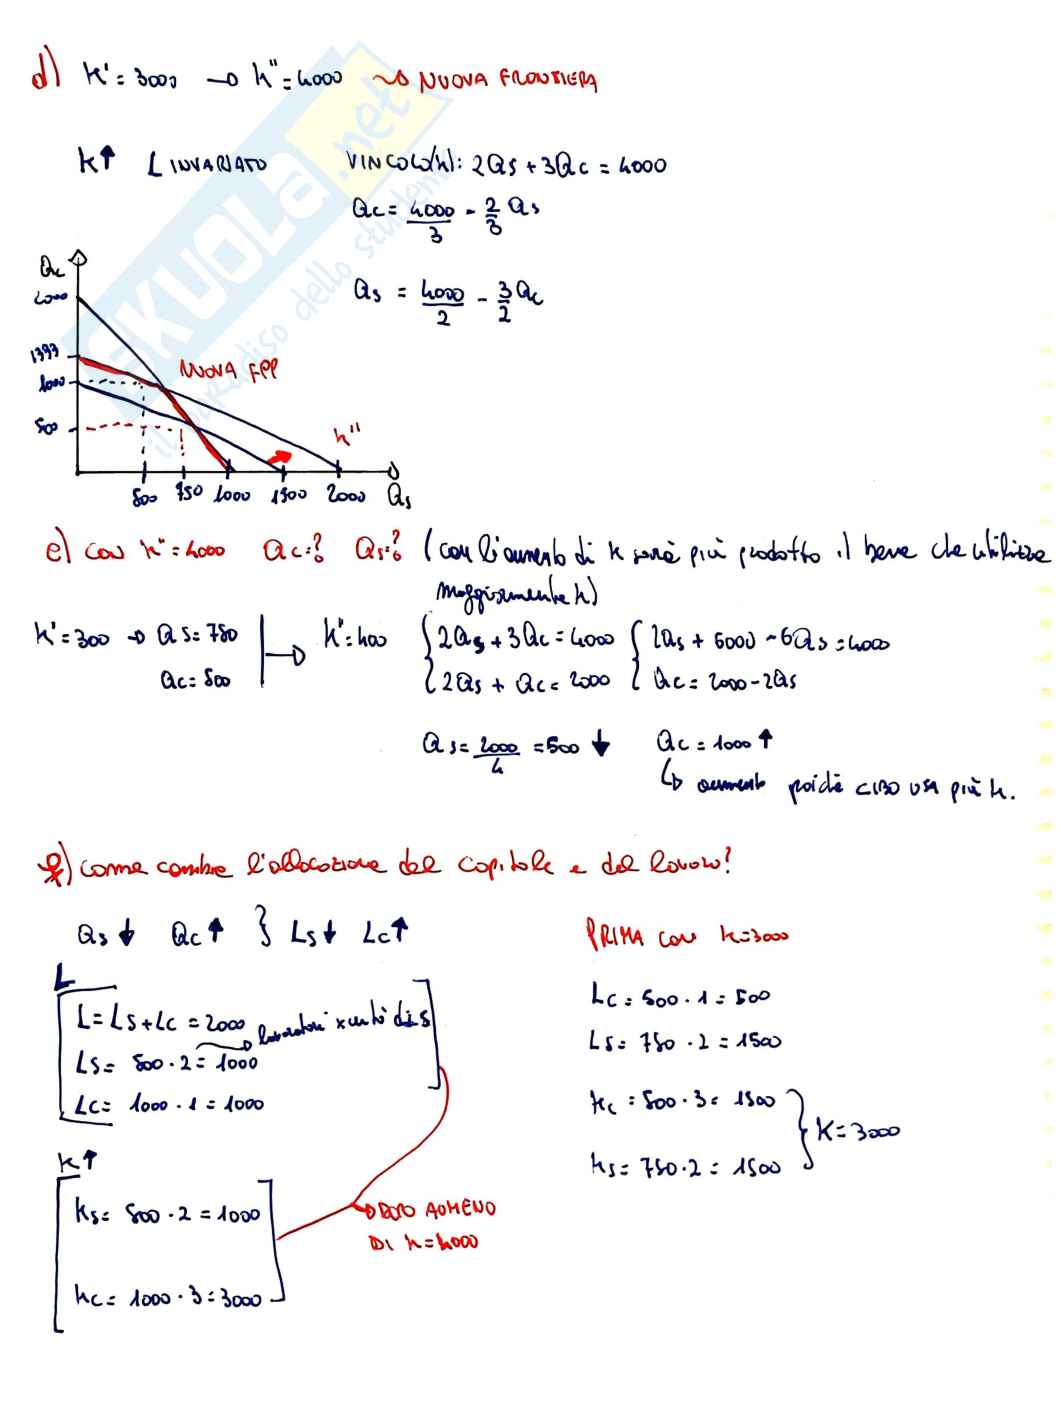 d) K'= 3000 → K''= 4000 ⇝ NUOVA FRONTIERA
K↑ L INVARIATO VINCOLO(K): 2Qs + 3Qc = 4000
Qc = 4000/3 - 2/3 Qs
Qs = 4000/2 - 3/2 Qc
Qc
2000
1393
1000
500
NUOVA FPP
K''
500 750 1000 1500 2000 Qs
e) con K''= 4000 Qc=? Qs=? (con l'aumento di K sarà più prodotto il bene che utilizza
maggiormente K)
K'= 300 → Qs= 750
Qc= 500
K'= 400
2Qs + 3Qc = 4000
2Qs + Qc = 2000
2Qs + 6000 - 6Qs = 4000
Qc = 2000 - 2Qs
Qs = 2000/4 = 500 ↓ Qc = 1000 ↑
↳ aumenta poichè CIBO USA più K.
f) Come cambia l'allocazione del capitale e del lavoro?
Qs ↓ Qc ↑ } Ls ↓ Lc ↑
L
L = Ls + Lc = 2000
Ls = 500 · 2 = 1000 → lavoratori x unità di S
Lc = 1000 · 1 = 1000
K↑
Ks = 500 · 2 = 1000
Kc = 1000 · 3 = 3000
→ DOPO AUMENO
DI K = 4000
PRIMA con K=3000
Lc = 500 · 1 = 500
Ls = 750 · 2 = 1500
Kc = 500 · 3 = 1500
Ks = 750 · 2 = 1500
} K = 3000
SKUOLA.net
il paradiso dello studente